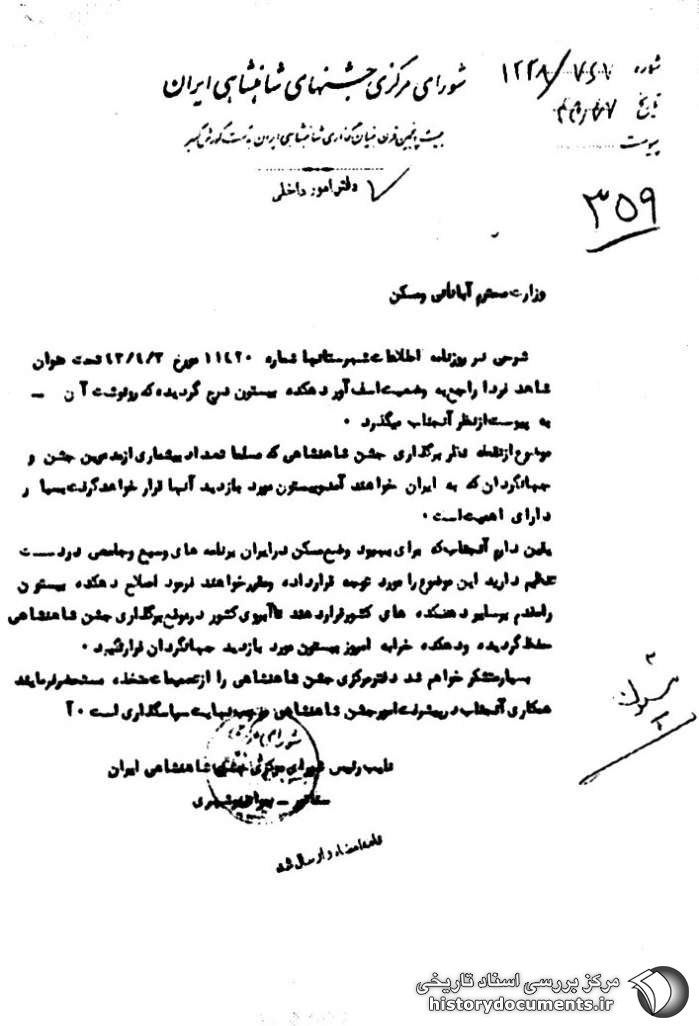 شماره ۱۲۲۸/۷۶۱
تاریخ
پیوست
شورای مرکزی جشنهای شاهنشاهی ایران
بیست و پنجمین قرن بنیان گذاری شاهنشاهی ایران بدست کورش کبیر
دفتر امور داخلی
۳۵۹
وزارت محترم آبادانی و مسکن
شرحی در روزنامه اطلاعات شهرستانها شماره ۱۱۴۲۰ مورخ ۴۳/۴/۳ تحت عنوان
شاهد فردا راجع به وضعیت اسف آور دهکده بیستون درج گردیده که رونوشت آن ــ
به پیوست از نظر آنجناب میگذرد ۰
موضوع از نقطه نظر برگذاری جشن شاهنشاهی که مسلما تعداد بیشماری از مدعوین جشن و
جهانگردان که به ایران خواهند آمد و بیستون مورد بازدید آنها قرار خواهد گرفت بسیار
دارای اهمیت است ۰
یقین دارم آنجناب که برای بهبود وضع مسکن در ایران برنامه های وسیع و جامعی در دست
تنظیم دارید این موضوع را مورد توجه قرار داده و مقرر خواهند فرمود اصلاح دهکده بیستون
را مقدم بر سایر دهکده های کشور قرار دهند تا آبروی کشور در موقع برگذاری جشن شاهنشاهی
حفظ گردیده و دهکده خرابه امروز بیستون مورد بازدید جهانگردان قرار نگیرد ۰
بسیار متشکر خواهم شد دفتر مرکزی جشن شاهنشاهی را از تصمیمات متخذه مستحضر فرمایند
همکاری آنجناب در پیشرفت امور جشن شاهنشاهی موجب نهایت سپاسگذاری است ۰ آ
نایب رئیس شورای مرکزی جشن شاهنشاهی ایران
سناتور ــ جواد بوشهری
نامه امضاء و ارسال شد
مرکز بررسی اسناد تاریخی
historydocuments.ir